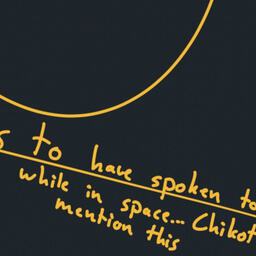 s to have spoken to
while in space... Chikot
mention this